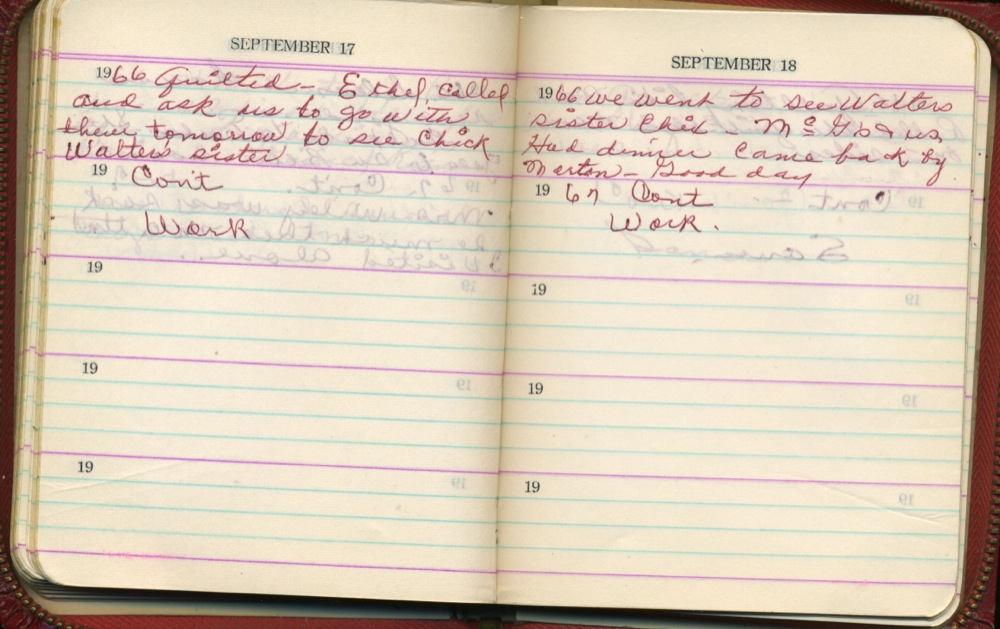 SEPTEMBER 17
1966 Quilted - Ethel called
and ask us to go with
them tomorrow to see Chick
Walters sister
19 Con't
Work
19
19
19
SEPTEMBER 18
1966 we went to see Walters
sister Chik - us
Had dinner came back by
Marton - Good day
1967 Cont
Work.
19
19
19